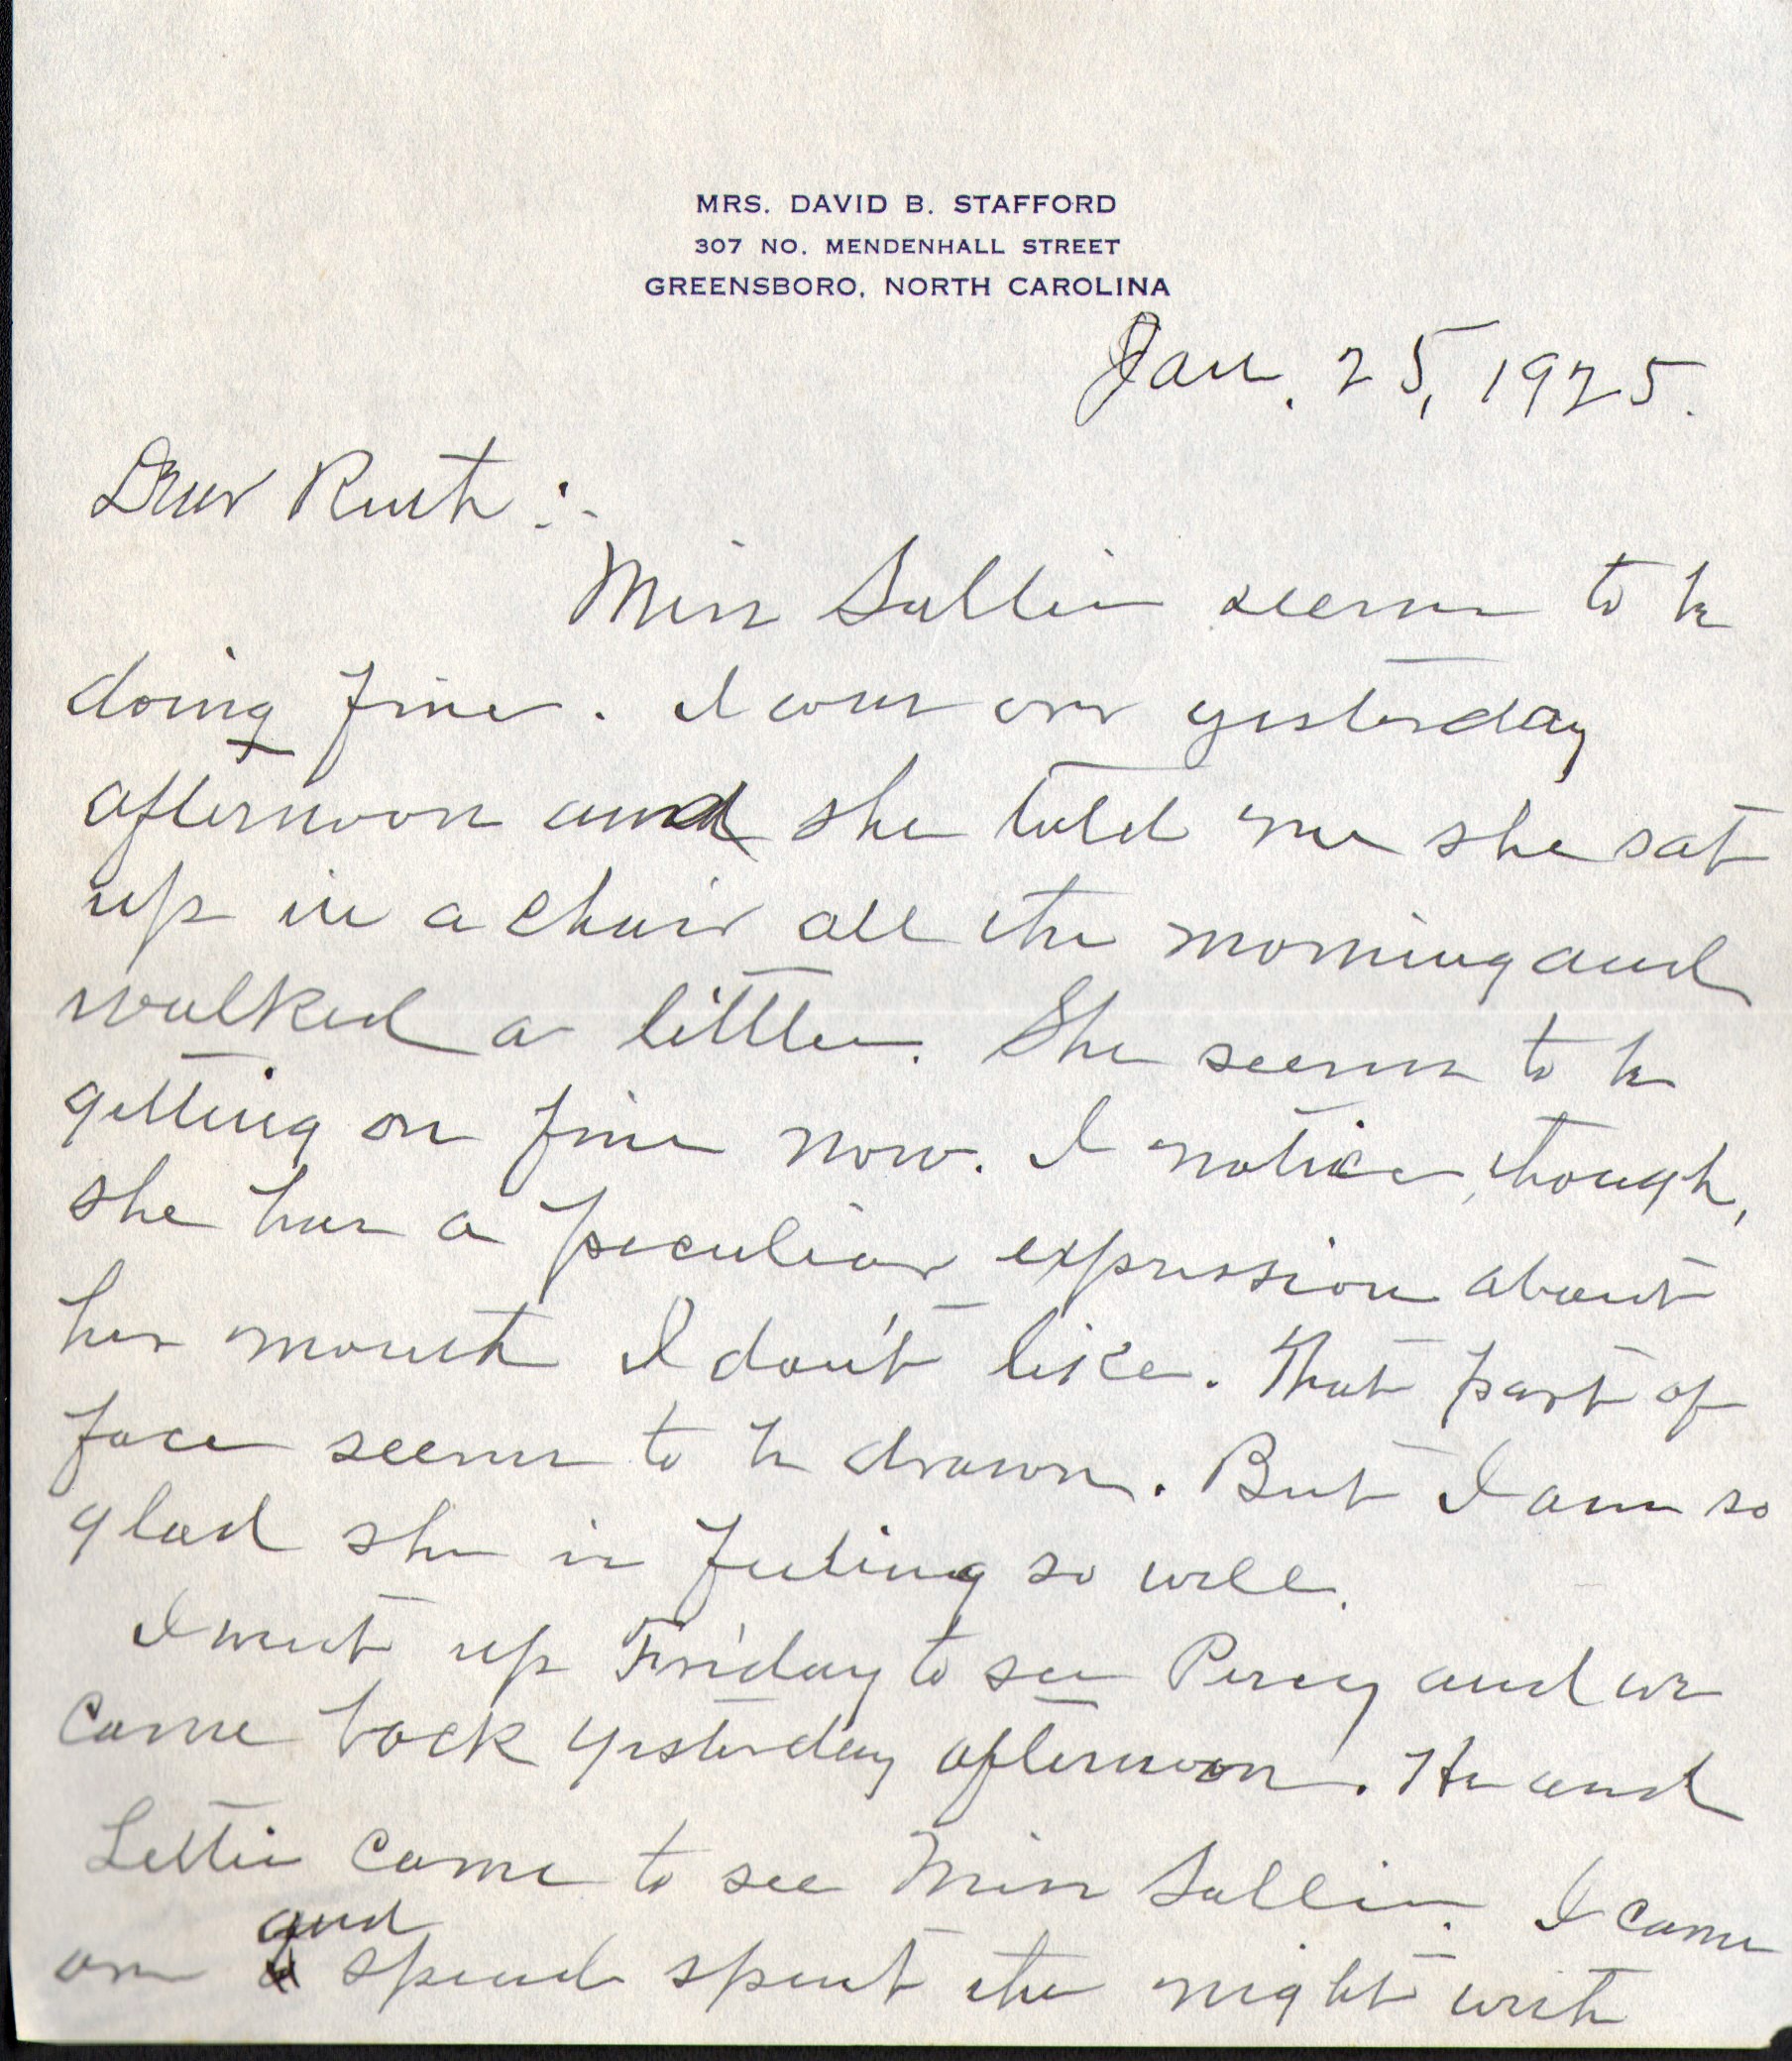 MRS. DAVID B. STAFFORD
307 NO. MENDENHALL STREET
GREENSBORO, NORTH CAROLINA
Jan. 25, 1925.
Dear Ruth :-
Miss Sallie seems to be
doing fine. I was over yesterday
afternoon and she told me she sat
up in a chair all the morning and
walked a little. She seems to be
getting on fine now. I notice, though,
she has a peculiar expression about
her mouth I don't like. That part of
face seems to be drawn. But I am so
glad she is feeling so well.
I went up Friday to see Percy and we
came back yesterday afternoon. He and
Lettie came to see Miss Sallie. I came
on and spend spent the night with